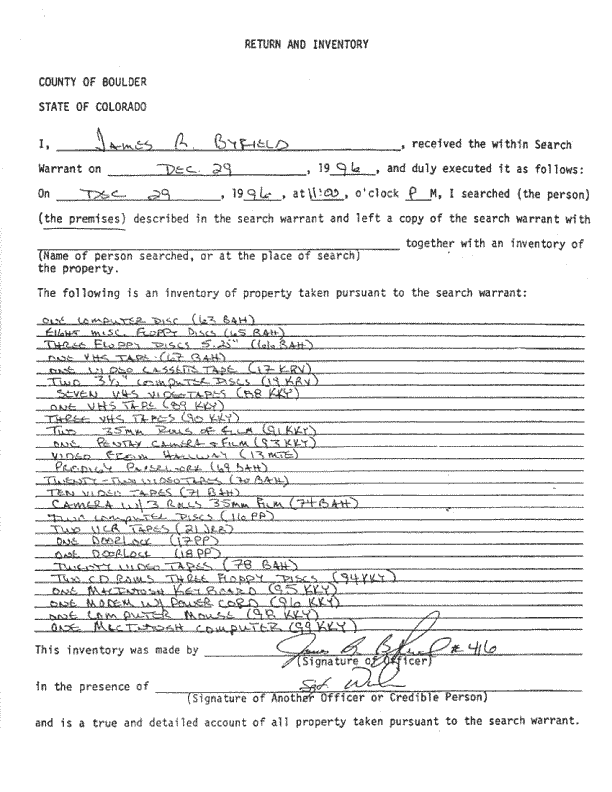 RETURN AND INVENTORY
COUNTY OF BOULDER
STATE OF COLORADO
I, JAMES R. BYFIELD, received the within Search
Warrant on DEC. 29, 1996, and duly executed it as follows:
On DEC 29, 1996, at 11:00, o'clock P M, I searched (the person)
(the premises) described in the search warrant and left a copy of the search warrant with
together with an inventory of
(Name of person searched, or at the place of search)
the property.
The following is an inventory of property taken pursuant to the search warrant:
ONE COMPUTER DISC (63 BAH)
EIGHT MISC. FLOPPY DISCS (65 BAH)
THREE FLOPPY DISCS 5.25" (66 BAH)
ONE VHS TAPE (67 BAH)
ONE VIDEO CASSETTE TAPE (17 KRV)
TWO 3½" COMPUTER DISCS (19 KRV)
SEVEN VHS VIDEOTAPES (88 KKY)
ONE VHS TAPE (89 KKY)
THREE VHS TAPES (90 KKY)
TWO 35mm ROLLS OF FILM (91 KKY)
ONE PENTAX CAMERA & FILM (93 KKY)
VIDEO FROM HALLWAY (13 MTE)
PRODIGY PAPERWORK (69 BAH)
TWENTY-TWO VIDEOTAPES (70 BAH)
TEN VIDEO TAPES (71 BAH)
CAMERA W/ 3 ROLLS 35mm FILM (74 BAH)
TWO COMPUTER DISCS (16 PP)
TWO VCR TAPES (21 JRB)
ONE DOORLOCK (17 PP)
ONE DOORLOCK (18 PP)
TWENTY VIDEO TAPES (78 BAH)
TWO CD ROMS THREE FLOPPY DISCS (94 KKY)
ONE MACINTOSH KEYBOARD (95 KKY)
ONE MODEM W/ POWER CORD (96 KKY)
ONE COMPUTER MOUSE (98 KKY)
ONE MACINTOSH COMPUTER (99 KKY)
This inventory was made by James R. Byfield #416
(Signature of Officer)
in the presence of Sgt.
(Signature of Another Officer or Credible Person)
and is a true and detailed account of all property taken pursuant to the search warrant.